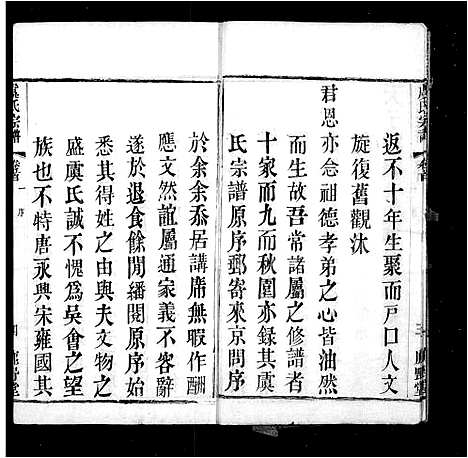 返不十年生聚而戸口人文
旋復舊觀沐
君恩亦念祖德孝弟之心皆油然
而生故吾常諸屬之修譜者
十家而九而秋圍亦録其虞
氏宗譜原序郵寄來京問序
於余余忝居講席無暇作酬
應文然誼屬通家義不容辭
遂於退食餘閒繙閱原序始
悉其得姓之由與夫文物之
盛虞氏誠不愧爲吳會之望
族也不特唐永興宋雍國其
虞氏宗譜
卷首
序
三